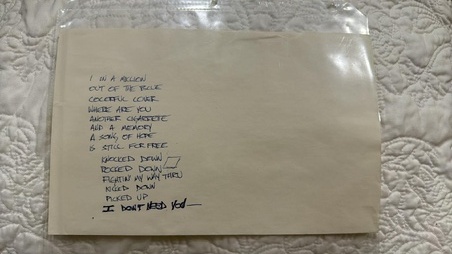 1 IN A MILLION
OUT OF THE BLUE
COLORFUL LOVER
WHERE ARE YOU
ANOTHER CIGARETTE
AND A MEMORY
A SONG OF HOPE
IS STILL FOR FREE
KNOCKED DOWN
FIGHTIN MY WAY THRU
DOWN
PICKED UP
I DON'T NEED YOU